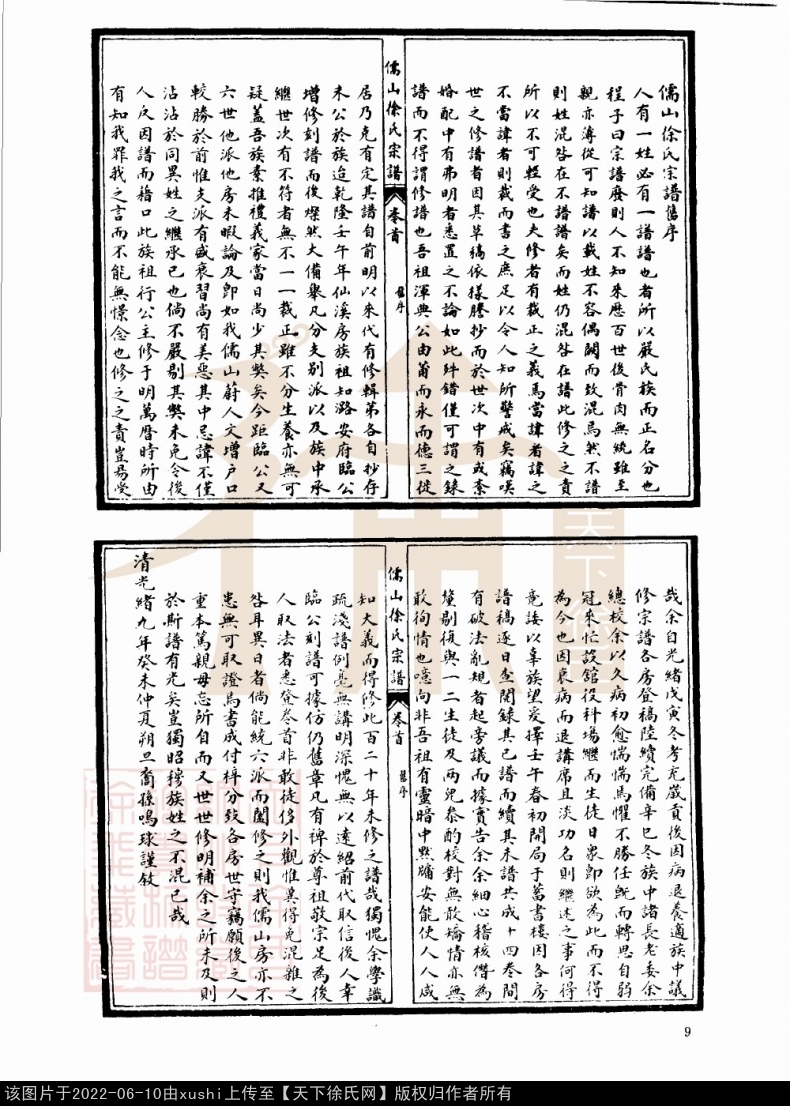 儒山徐氏宗譜舊序
人有一姓必有一譜譜也者所以嚴氏族而正名分也
程子曰宗譜廢則人不知來歷百世後骨肉無統雖至
親亦薄從可知譜以載姓不容偶闕而致混焉然不譜
則姓混咎在不譜譜矣而姓仍混咎在譜此修之之責
所以不可輕受也夫修者有裁正之義焉當諱者諱之
不當諱者則裁而書之庶足以令人知所擊戒矣竊嘆
世之修譜者因其草稿依樣謄抄而於世次中有或紊
婚配中有弗明者悉置之不論如此舛錯僅可謂之録
譜而不得謂修譜也吾祖渾典公由莆而永而德三徙
儒山徐氏宗譜
卷首
舊序
居乃克有定其譜自前明以來代有修輯弟各自抄存
未公於族迨乾隆壬午年仙溪房族祖知潞安府臨公
增修刻譜而後燦然大備舉凡分支別派以及族中承
繼世次有不符者無不一一裁正雖不分生養亦無可
疑蓋吾族素推禮義家當日尚少其弊矣今距臨公又
六世他派他房未暇論及即如我儒山蔚人文增户口
較勝於前惟支派有盛衰習尚有美惡其中忌諱不僅
沾沾於同異姓之繼承已也倘不嚴剔其弊未免令後
人反因譜而藉口此族祖行公主修于明萬曆時所由
有知我罪我之言而不能無憬念也修之之責豈易受
哉余自光緒戊寅冬考充歲貢後因病退養適族中議
修宗譜各房登稿陸續完備辛巳冬族中諸長老委余
總校余以久病初愈惴惴焉懼不勝任既而轉思自弱
冠來忙設館役科場繼而生徒日衆即欲為此而不得
為今也因衰病而退講席且淡功名則繼述之事何得
竟諉以辜族望爰擇壬午春初開局于蓄書樓因各房
譜稿逐日查閲録其已譜而續其未譜共成十四卷間
有破法亂規者起旁議而據實告余余細心稽核僭為
釐剔復與一二生徒及兩兒參酌校對無敢矯情亦無
敢徇情也噫向非吾祖有靈暗中默牖安能使人人咸
儒山徐氏宗譜
卷首
舊序
知大義而得修此百二十年未修之譜哉獨愧余學識
疏淺譜例毫無講明深愧無以遠紹前代取信後人幸
臨公刻譜可據仿仍舊章凡有裨於尊祖敬宗足為後
人取法者悉登卷首非敢徒侈外觀惟冀得免混雜之
咎耳異日者倘能統六派而闔修之則我儒山房亦不
患無可取證焉書成付梓分致各房世守竊願後之人
重本篤親毋忘所自而又世世修明補余之所未及則
於斯譜有光矣豈獨昭穆族姓之不混已哉
清光緒九年癸未仲夏朔旦裔孫鳴球謹敘
9
该图片于2022-06-10由xushi上传至【天下徐氏网】版权归作者所有